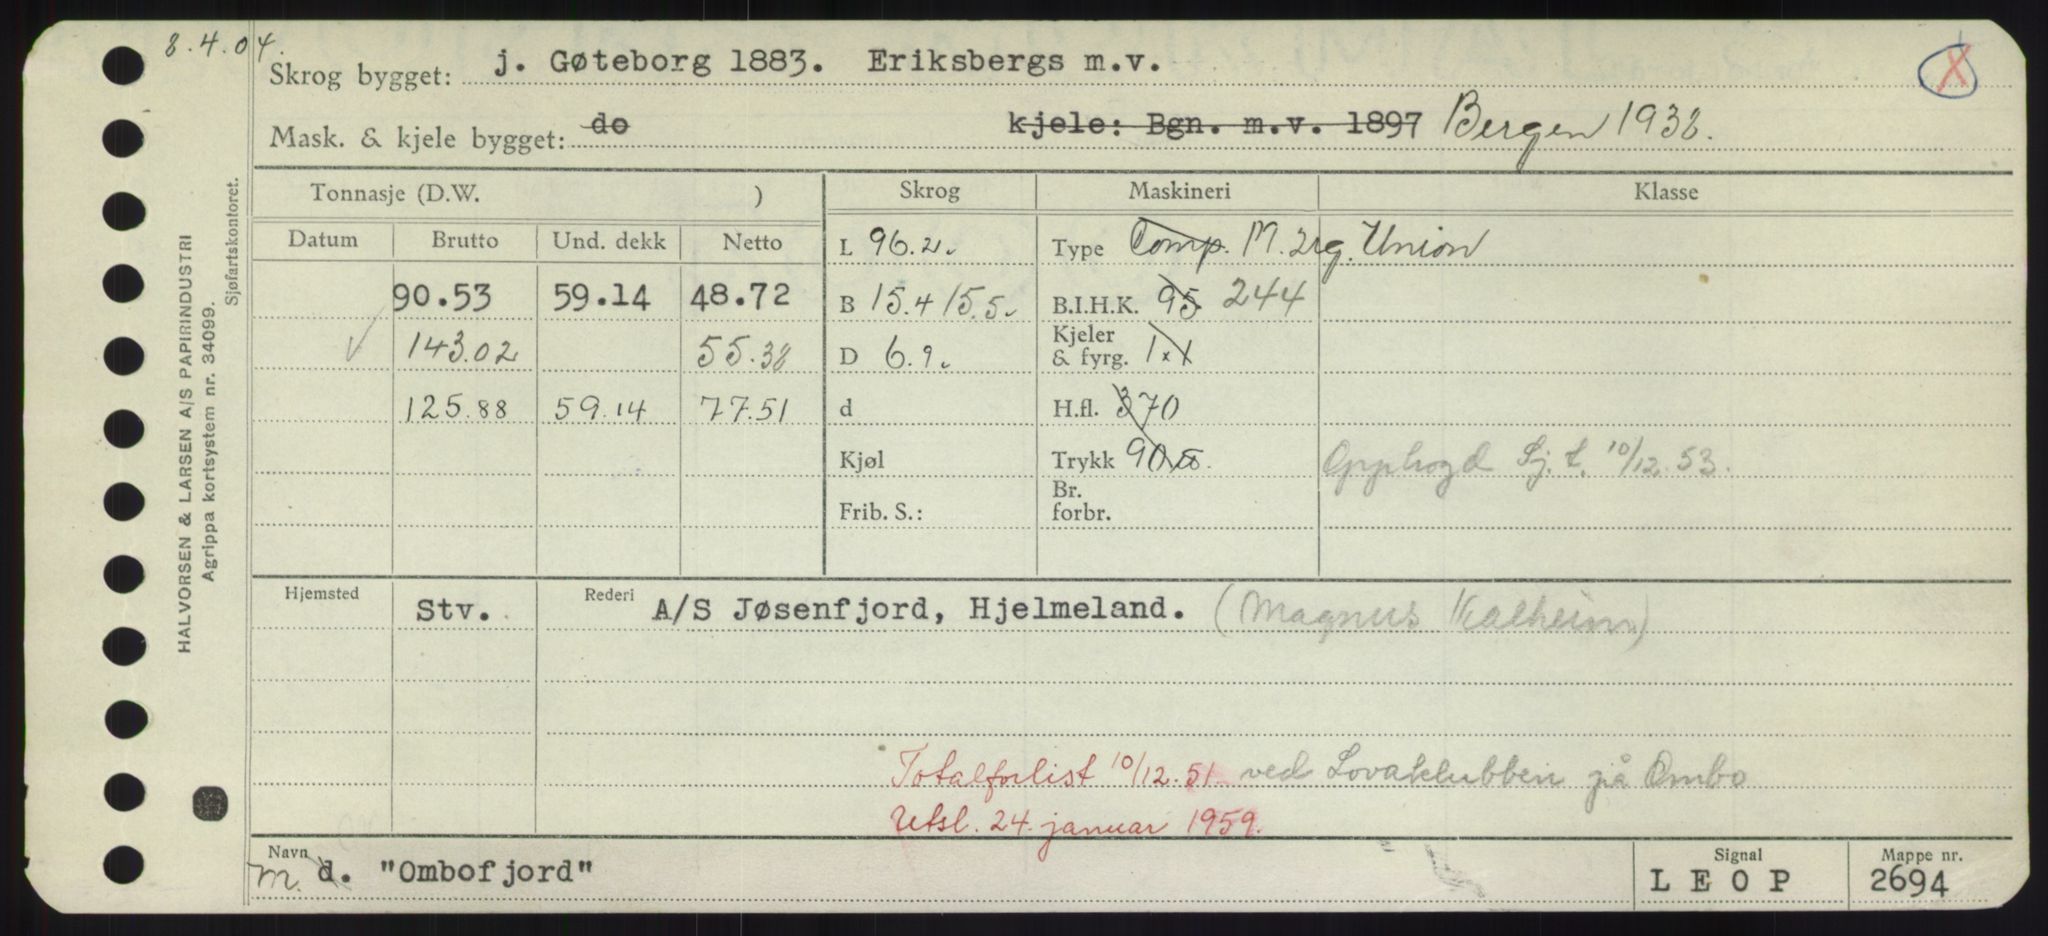 8.4.04.
Skrog bygget: j. Gøteborg 1883. Eriksbergs m.v.
X
Mask. & kjele bygget: do kjele: Bgn. m.v. 1897 Bergen 1938.
HALVORSEN & LARSEN A/S PAPIRINDUSTRI
Agrippa kortsystem nr. 34099.
Sjøfartskontoret.
Tonnasje (D.W. ) Skrog Maskineri Klasse
Datum Brutto Und. dekk Netto L 96.2. Type Comp. M. 2 Union
90.53 59.14 48.72 B 15.4/5.5. B.I.H.K. 95 244
143.02 55.38 D 6.9. Kjeler & fyrg. 1x1
125.88 59.14 77.51 d H.fl. 370
Kjøl Trykk 90 Opphogd Sj.t. 10/12.53.
Frib. S.: Br. forbr.
Hjemsted Stv. Rederi A/S Jøsenfjord, Hjelmeland. (Magnus Kalheim)
Totalforlist 10/12.51. ved Lovaklubben på Ombo
Utsl. 24. januar 1959.
Navn m. d. "Ombofjord" Signal L E O P Mappe nr. 2694